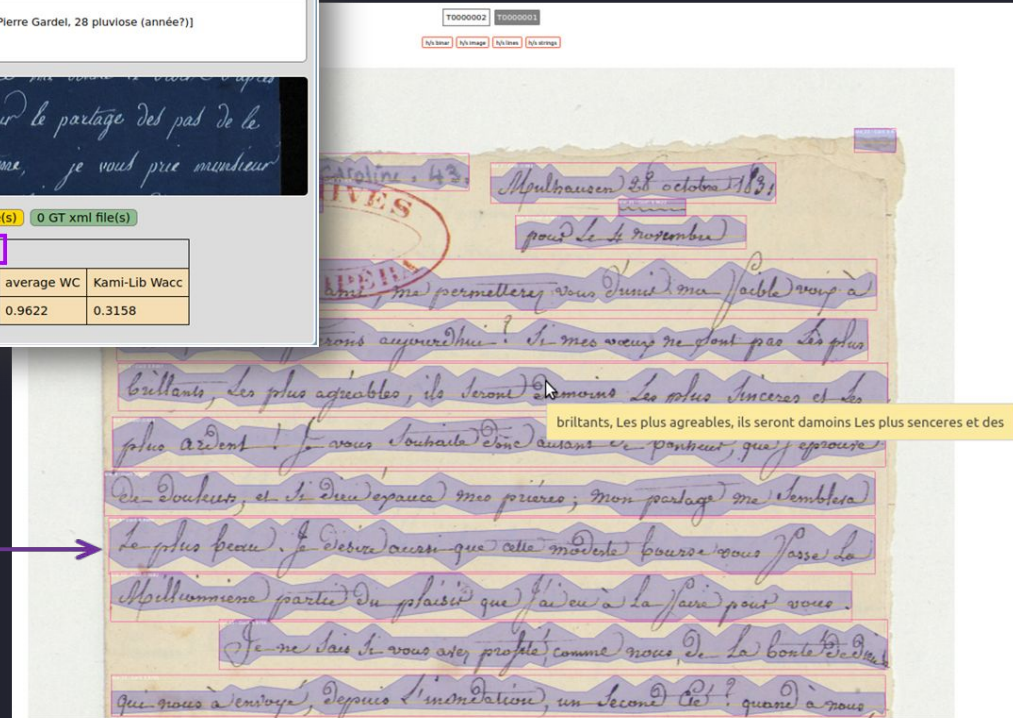 Pierre Gardel, 28 pluviose (année?)]
le partage des pas de le
je vous prie monsieur
e(s) 0 GT xml file(s)
average WC Kami-Lib Wacc
0.9622 0.3158
T0000002 T0000001
h/s binar h/s image h/s lines h/s strings
Caroline, 43.
Mulhausen 28 octobre 183
pour Le 4 novembre
me permetterez vous d'unir ma faible voix à
aujourdhui ? Si mes vœux ne sont pas Les plus
brillants, Les plus agréables, ils seront Les plus sinceres et Les
briltants, Les plus agreables, ils seront damoins Les plus senceres et des
plus ardent ! Je vous souhaite donc autant de bonheur, que j'éprouve
De Douleurs, et Si Dieu épauce mes priéres ; mon partage me Semblera
Le plus beau. Je désire aussi que cette modeste bourse vous fasse La
Millionniene partie Du plaisir que j'ai eu à La faire pour vous.
Je ne Sais Si vous avez profité, comme nous, De La bonté De Dieu
qui nous à envoyé, Depuis L'inondation, un Second Eté ? quand à nous